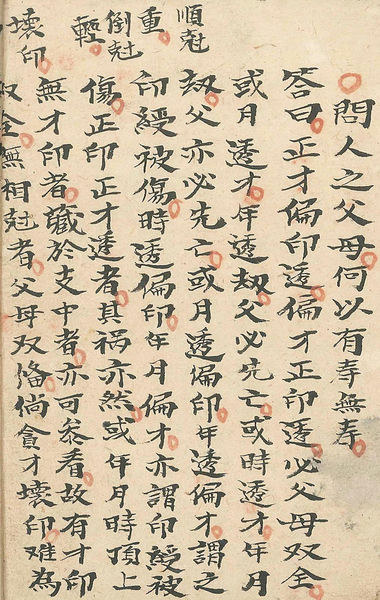 問人之父母何以有寿無寿
答曰正才偏印透偏才正印透必父母双全
或月透才年透刼父必先亡或時透才年月
刼父亦必先亡或月透偏印年透偏才謂之
印綬被傷時透偏印年月偏才亦謂印綬被
傷正印正才透者其禍亦然或年月時頂上
無才印者藏於支中者亦可参看故有才印
双全無相尅者父母双俻倘貪才壞印难為
順尅
重
倒尅
輕
壞印